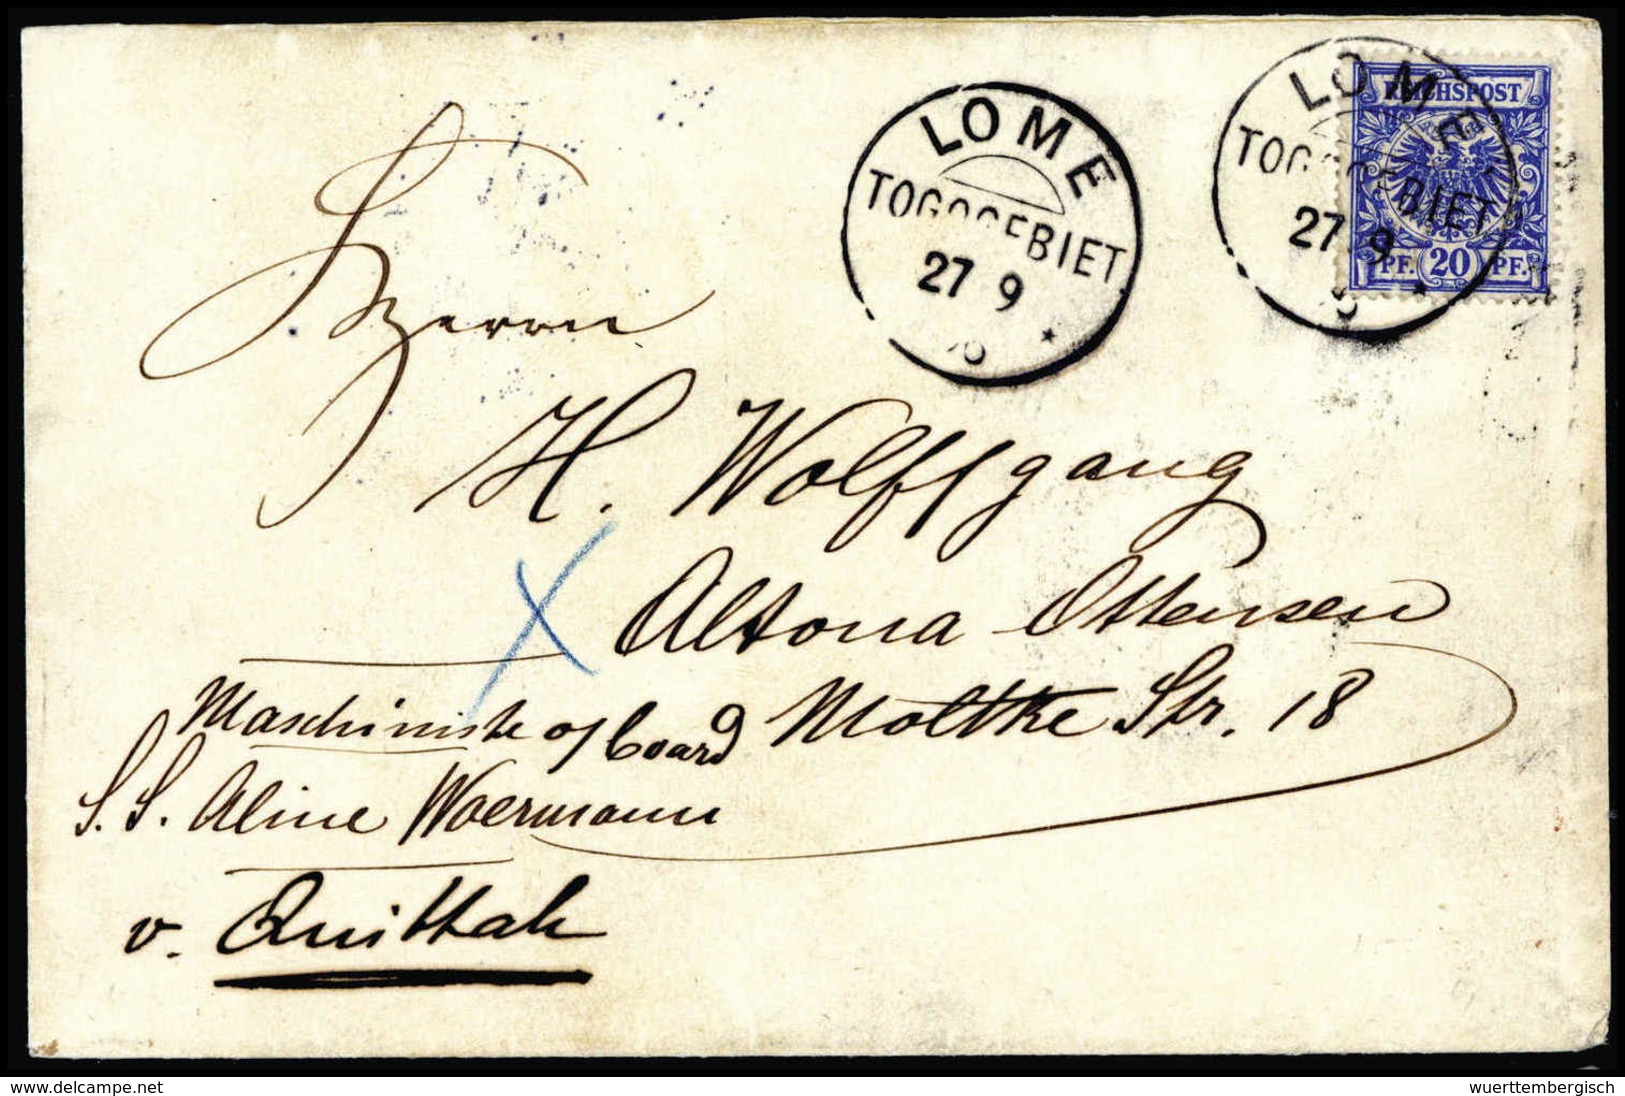 LOME
TOGOGEBIET
27 9
LOME
TOGOGEBIET
27 9
REICHSPOST
PF. 20 PF.
Herrn
H. Wolffgang
Altona Ottensen
Moltke Str. 18
Maschiniste o/ board
S.S. Aline Woermann
v. Quittah
www.delcampe.net
wuerttembergisch